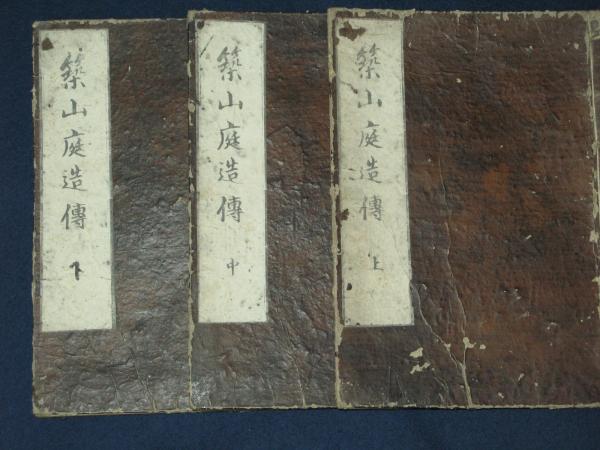 築山庭造傳 上
築山庭造傳 中
築山庭造傳 下